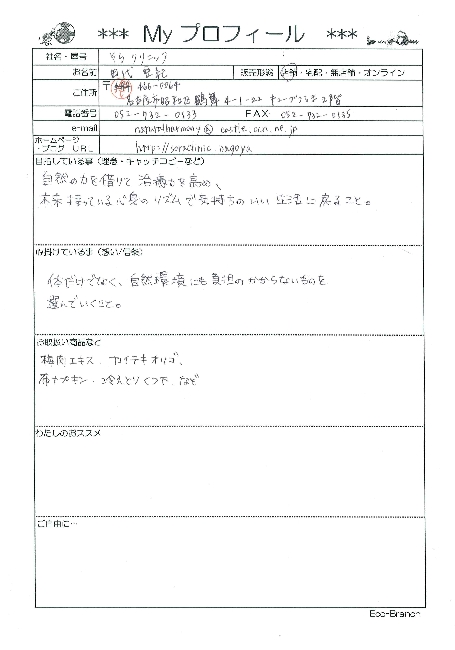 *** My プロフィール ***
社名・屋号 そら クリニック
お名前 販売形態 店舗・宅配・無店舗・オンライン
ご住所 〒 466-0064
名古屋市昭和区鶴舞 4-1-22 2階
電話番号 052-732-0133 FAX 052-732-0135
e-mail naturalharmony@ castle.ocn.ne.jp
ホームページ
・ブログ URL http://soraclinic.nagoya
目指している事（理念・キャッチコピーなど）
自然の力を借りて 治癒力を高め、
本来 持っている心身のリズムで気持ちのいい 生活に戻ること。
心掛けている事（想い/信条）
体だけでなく、自然環境にも負担のかからないものを
選んでいくこと。
お取扱い商品など
梅肉エキス、カイテキオリゴ、
布ナプキン・冷えとりくつ下、など
わたしのおススメ
ご自由に…
Eco-Branch